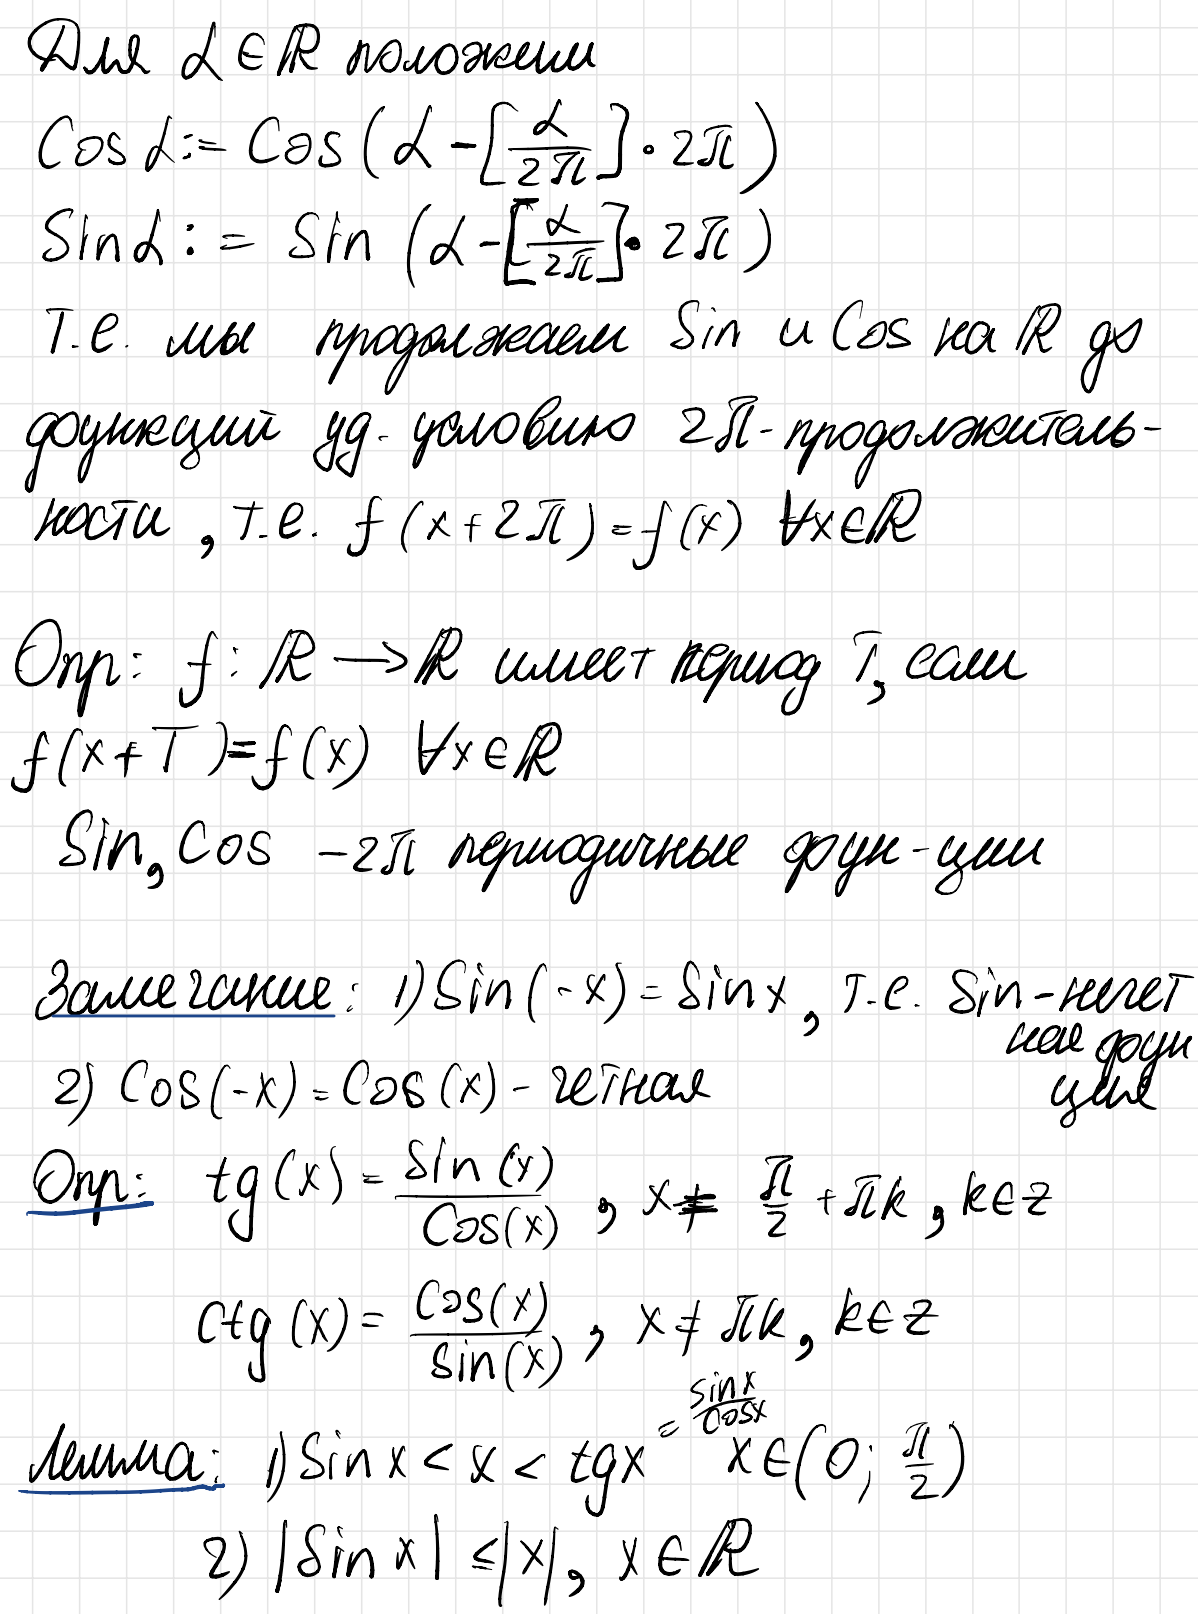 Для α ∈ ℝ положим
Cos α := Cos (α - [α/2π] · 2π)
Sin α := Sin (α - [α/2π] · 2π)
т.е. мы продолжаем Sin и Cos на ℝ до
функций уд. условию 2π-продолжитель-
ности, т.е. f(x+2π) = f(x) ∀x∈ℝ
Опр: f: ℝ → ℝ имеет период T, если
f(x+T) = f(x) ∀x∈ℝ
Sin, Cos - 2π периодичные фун-ции
Замечание: 1) Sin(-x) = Sin x, т.е. Sin - нечет
ная фун
ция
2) Cos(-x) = Cos(x) - четная
Опр: tg(x) = Sin(x)/Cos(x), x ≠ π/2 + πk, k∈z
ctg(x) = Cos(x)/Sin(x), x ≠ πk, k∈z
Лемма: 1) Sin x < x < tg x = Sin x/Cos x x∈(0; π/2)
2) |Sin x| ≤ |x|, x∈ℝ